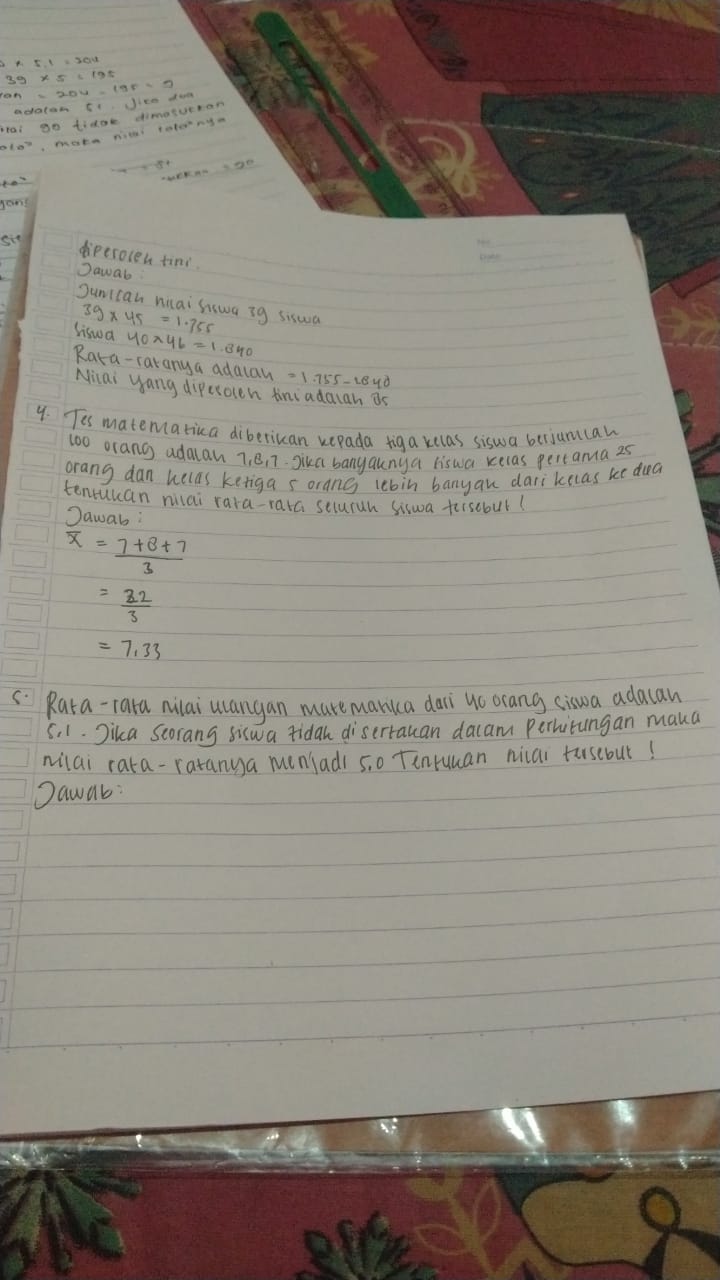 x 5,1 = 204
39 x 5 = 195
= 204 - 195 = 9
adalah 51. Jika dua
90 tidak dimasukkan
maka nilai rata²nya
No
Date
diperoleh tini.
Jawab:
Jumlah nilai siswa 39 siswa
39 x 45 = 1.755
Siswa 40 x 46 = 1.840
Rata-ratanya adalah = 1.755-1840
Nilai yang diperoleh tini adalah 85
4. Tes matematika diberikan kepada tiga kelas siswa berjumlah
100 orang adalah 7,8,7. Jika banyaknya siswa kelas pertama 25
orang dan kelas ketiga 5 orang lebih banyak dari kelas ke dua
tentukan nilai rata-rata seluruh siswa tersebut!
Jawab:
x̄ = 7+8+7
3
= 22
3
= 7,33
5. Rata-rata nilai ulangan matematika dari 40 orang siswa adalah
5,1. Jika seorang siswa tidak disertakan dalam perhitungan maka
nilai rata-ratanya menjadi 5.0 Tentukan nilai tersebut!
Jawab: